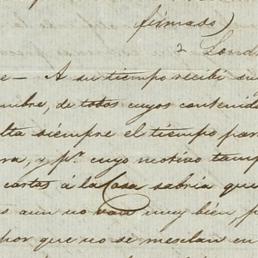 firmado)
2 Lond
e — A su tiempo recibi su
mbre, de todos cuyos contenid
lta siempre el tiempo par
ra, y pr. cuyo motivo tamp
cartas á la Casa sabria que
s aun no van muy bien, p
hor que no se mesclan en